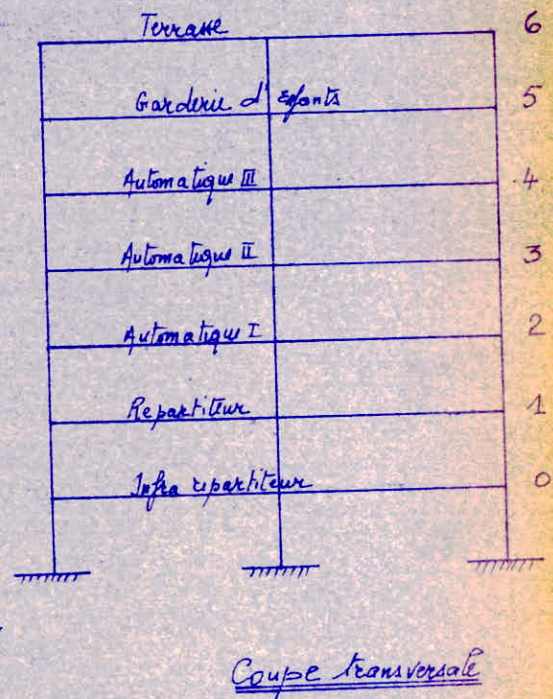 Terrasse 6
Garderie d' enfants 5
Automatique III 4
Automatique II 3
Automatique I 2
Repartiteur 1
Infra repartiteur 0
Coupe transversale